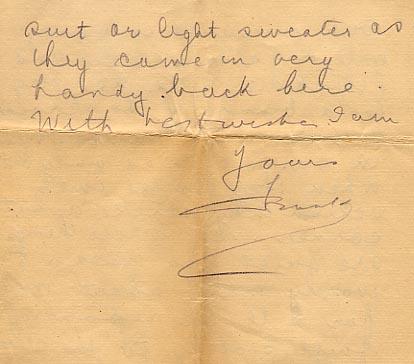 suit or light sweater as
they come in very
handy back here.
With best wishes I am
Yours
Frank